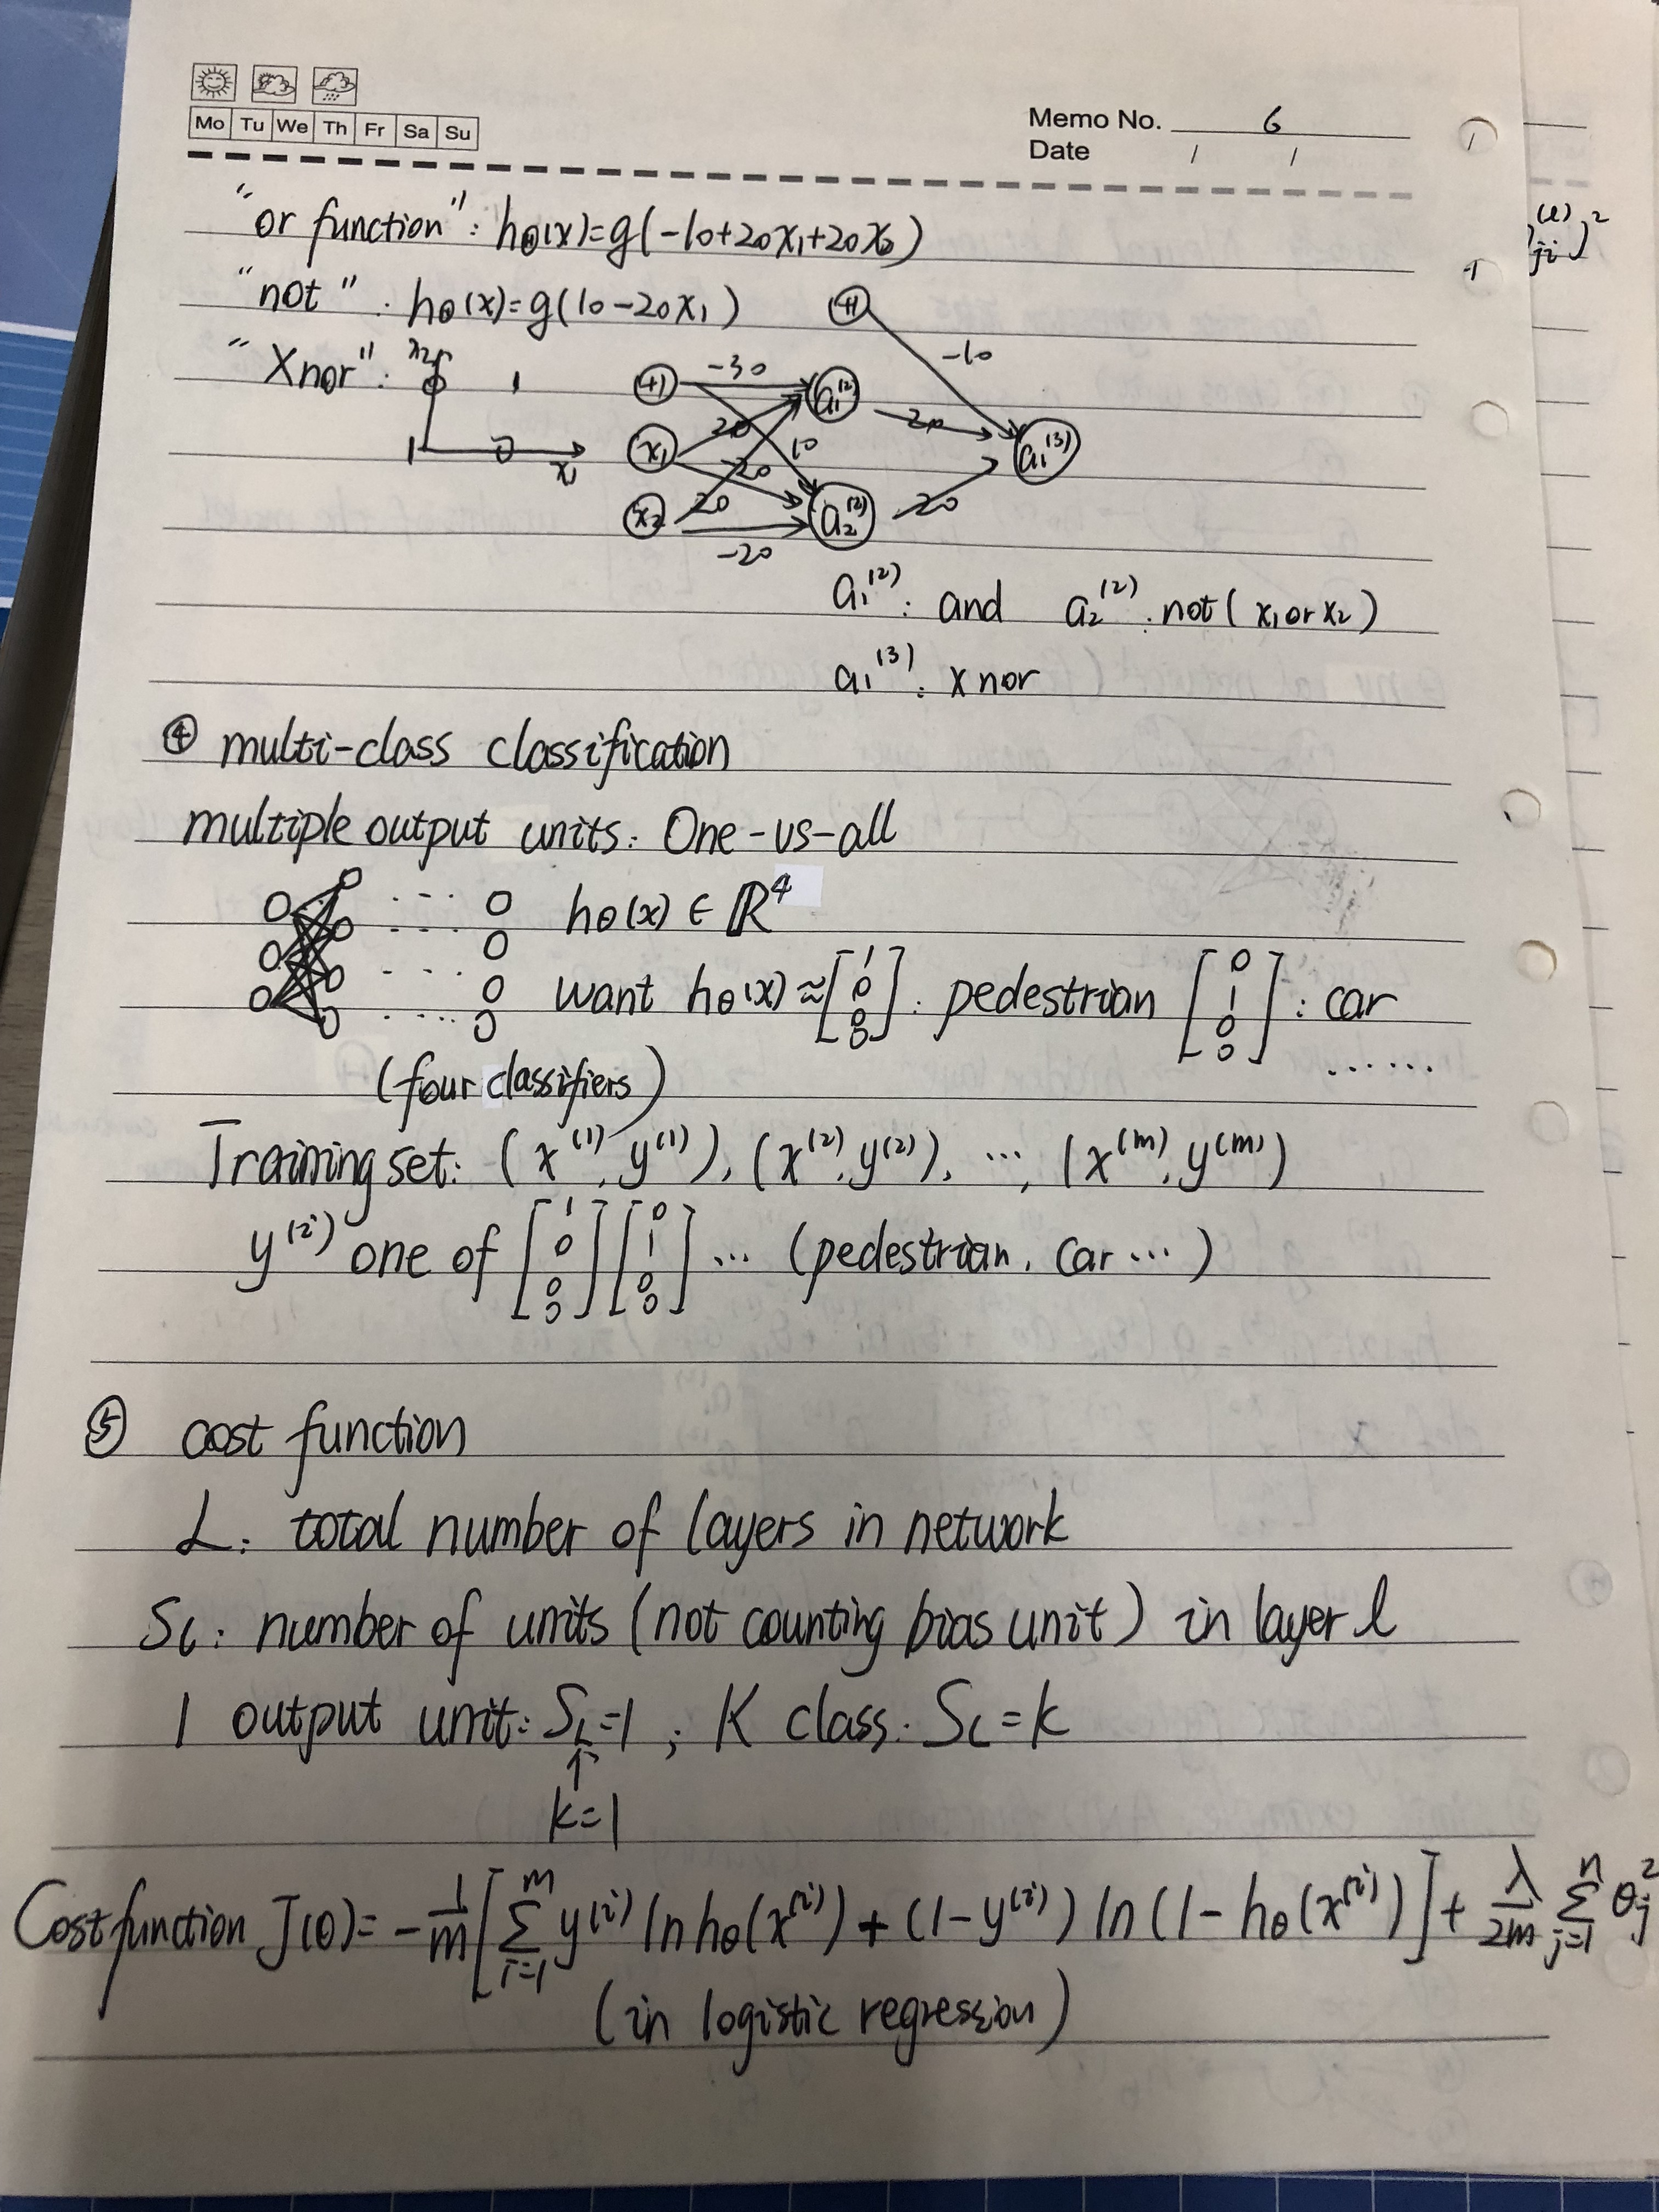 Mo Tu We Th Fr Sa Su
Memo No. 6
Date / /
"or function": hθ(x)=g(-10+20x₁+20x₂)
"not": hθ(x)=g(10-20x₁)
"Xnor": x₂ 1 1 x₁
+1 -10
+1 -30 a₁⁽²⁾ 20
x₁ 20 10 -20 a₁⁽³⁾
x₂ 20 -20 a₂⁽²⁾ 20
a₁⁽²⁾: and a₂⁽²⁾: not(x₁ or x₂)
a₁⁽³⁾: xnor
④ multi-class classification
multiple output units: One-vs-all
hθ(x) ∈ ℝ⁴
want hθ(x) ≈ [1 0 0 0]: pedestrian [0 1 0 0]: car
......
(four classifiers)
Training set: (x⁽¹⁾, y⁽¹⁾), (x⁽²⁾, y⁽²⁾), ..., (x⁽ᵐ⁾, y⁽ᵐ⁾)
y⁽ⁱ⁾ one of [1 0 0 0] [0 1 0 0] ... (pedestrian, car ...)
⑤ cost function
L: total number of layers in network
Sl: number of units (not counting bias unit) in layer l
1 output unit: SL=1; K class: SL=k
↑
k=1
Cost function J(θ)= -1/m [∑ᵢ₌₁ᵐ y⁽ⁱ⁾ ln hθ(x⁽ⁱ⁾) + (1-y⁽ⁱ⁾) ln (1-hθ(x⁽ⁱ⁾)] + λ/2m ∑ⱼ₌₁ⁿ θⱼ²
(in logistic regression)